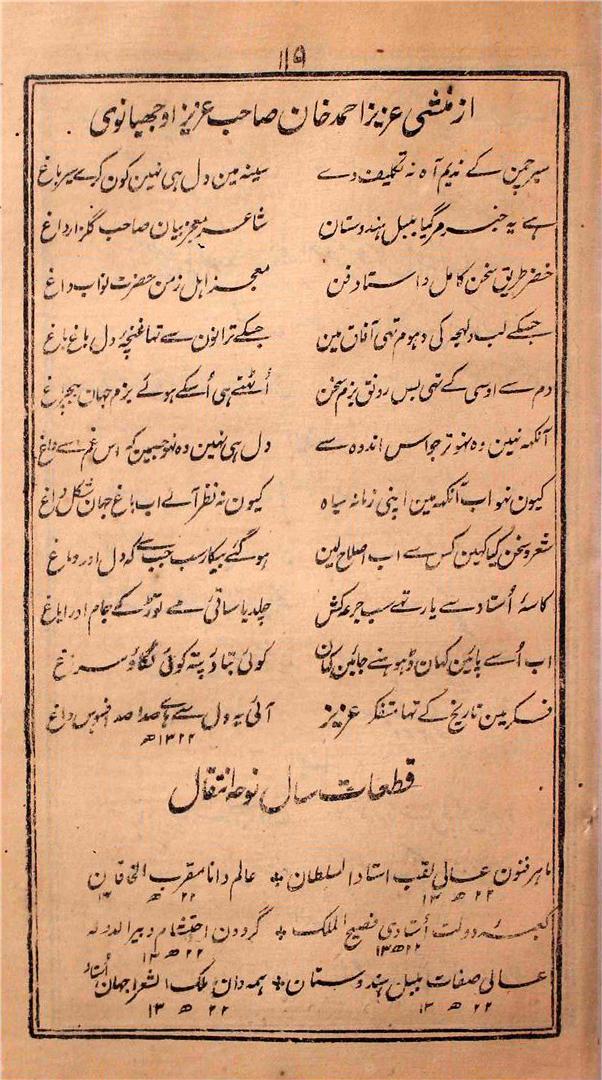 ۱۱۹
از منشی عزیز احمد خان صاحب عزیز اوجھیانوی
سیر چمن کے ندیم آہ نہ تکلیف دے سینہ مین دل ہی نہین کون کرے سیر باغ
ہے یہ خبر مر گیا بلبل ہندوستان شاعر معجز بیان صاحب گلزار داغ
خضر طریق سخن کامل و استاد فن معجز اہل زمن حضرت نواب داغ
جسکے لب و لہجہ کی دہوم تہی آفاق مین جسکے ترانون سے تہا غنچۂ دل باغ باغ
دم سے اوسی کے تہی بس رونق بزم سخن اُٹہتے ہی اُسکے ہوئے بزم جہان بیچراغ
آنکہہ نہین وہ نہو تر جو اس اندوہ سے دل ہی نہین وہ نہو جسمین کہ اس غم سے داغ
کیون نہو اب آنکہہ مین اپنی زمانہ سیاہ کیون نہ نظر آئے اب باغ جہان شکل داغ
شعر و سخن کیا کہین کس سے اب اصلاح لین ہو گئے بیکار سب جب سے کہ دل اور دماغ
کاسۂ اُستاد سے یار تہے سب جرعہ کش چلدیا ساقی مے توڑ کے جام اور ایاغ
اب اُسے پائین کہان ڈہونڈنے جائین کہان کوئی بتاؤ پتہ کوئی لگاؤ سراغ
فکر مین تاریخ کے تہا متفکر عزیز آئی یہ دل سے ہاے صدا صد افسوس داغ
۱۳۲۲ھ
قطعات سال نوعہ انتقال
ماہر فنون عالی لقب استاد السلطان * عالم دانا مقرب الخاقان
۱۳۲۲ھ ۱۳۲۲ھ
کعبۂ دولت اُستادی فصیح الملک * گردون احتشام دبیر الدولہ
۱۳۲۲ھ ۱۳۲۲ھ
عالی صفات بلبل ہندوستان * ہمہ دان ملک الشعرا جہان اُستاد
۱۳۲۲ھ ۱۳۲۲ھ